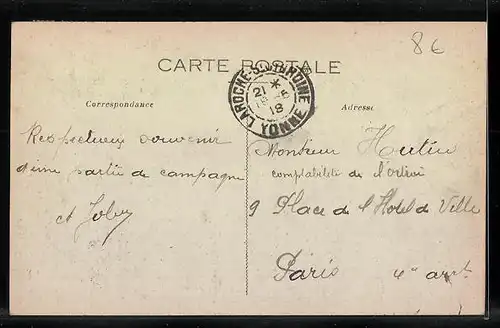 86
CARTE POSTALE
LAROCHE-ST-CYDROINE
21 *
18
YONNE
Correspondance
Adresse
Respectueux souvenir
d'une partie de campagne
et
Monsieur Hutin
comptabilité de
9 Place de l'Hotel de Ville
Paris 4e arrt